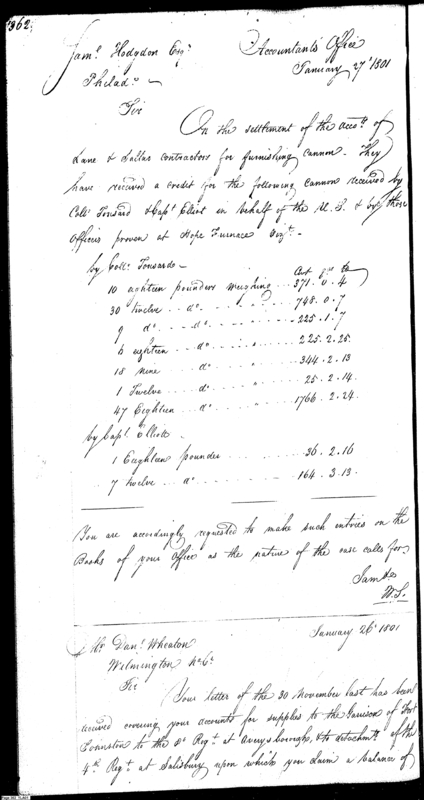 362.
Sam.l Hodgdon Esqr
Accountant's Office
January 27th 1801
Philada
Sir
On the settlement of the accots of
Lane & Dallas contractors for furnishing cannon. They
have received a credit for the following cannon received by
Coll. Tousard & Capt. Elliot in behalf of the U.S. & by those
Officers proven at Hope Furnace Vizt.
by Coll. Tousard
Cwt qrs lb
10 eighteen pounders weighing 371. 0. 4
30 twelve do " 748. 0. 7
9 do do " 225. 1. 7
6 eighteen do " 225. 2. 25.
18 nine do " 344. 2. 13
1 Twelve do " 25. 2. 14.
47 Eighteen do " 1766. 2. 24.
by Capt. Elliott
1 Eighteen pounder 36. 2. 16
7 twelve do 164. 3. 13.
You are accordingly requested to make such entries on the
Books of your Office as the nature of the case calls for
I am &c
W.S.
January 26th 1801
Mr Danl. Wheaton
Wilmington No Ca
Sir
Your letter of the 30 November last has been
received covering your accounts for supplies to the Garrison of Fort
Johnston to the Regt. at Averysborough, & to detachments of the
4th Regt. at Salisbury upon which you claim a balance of